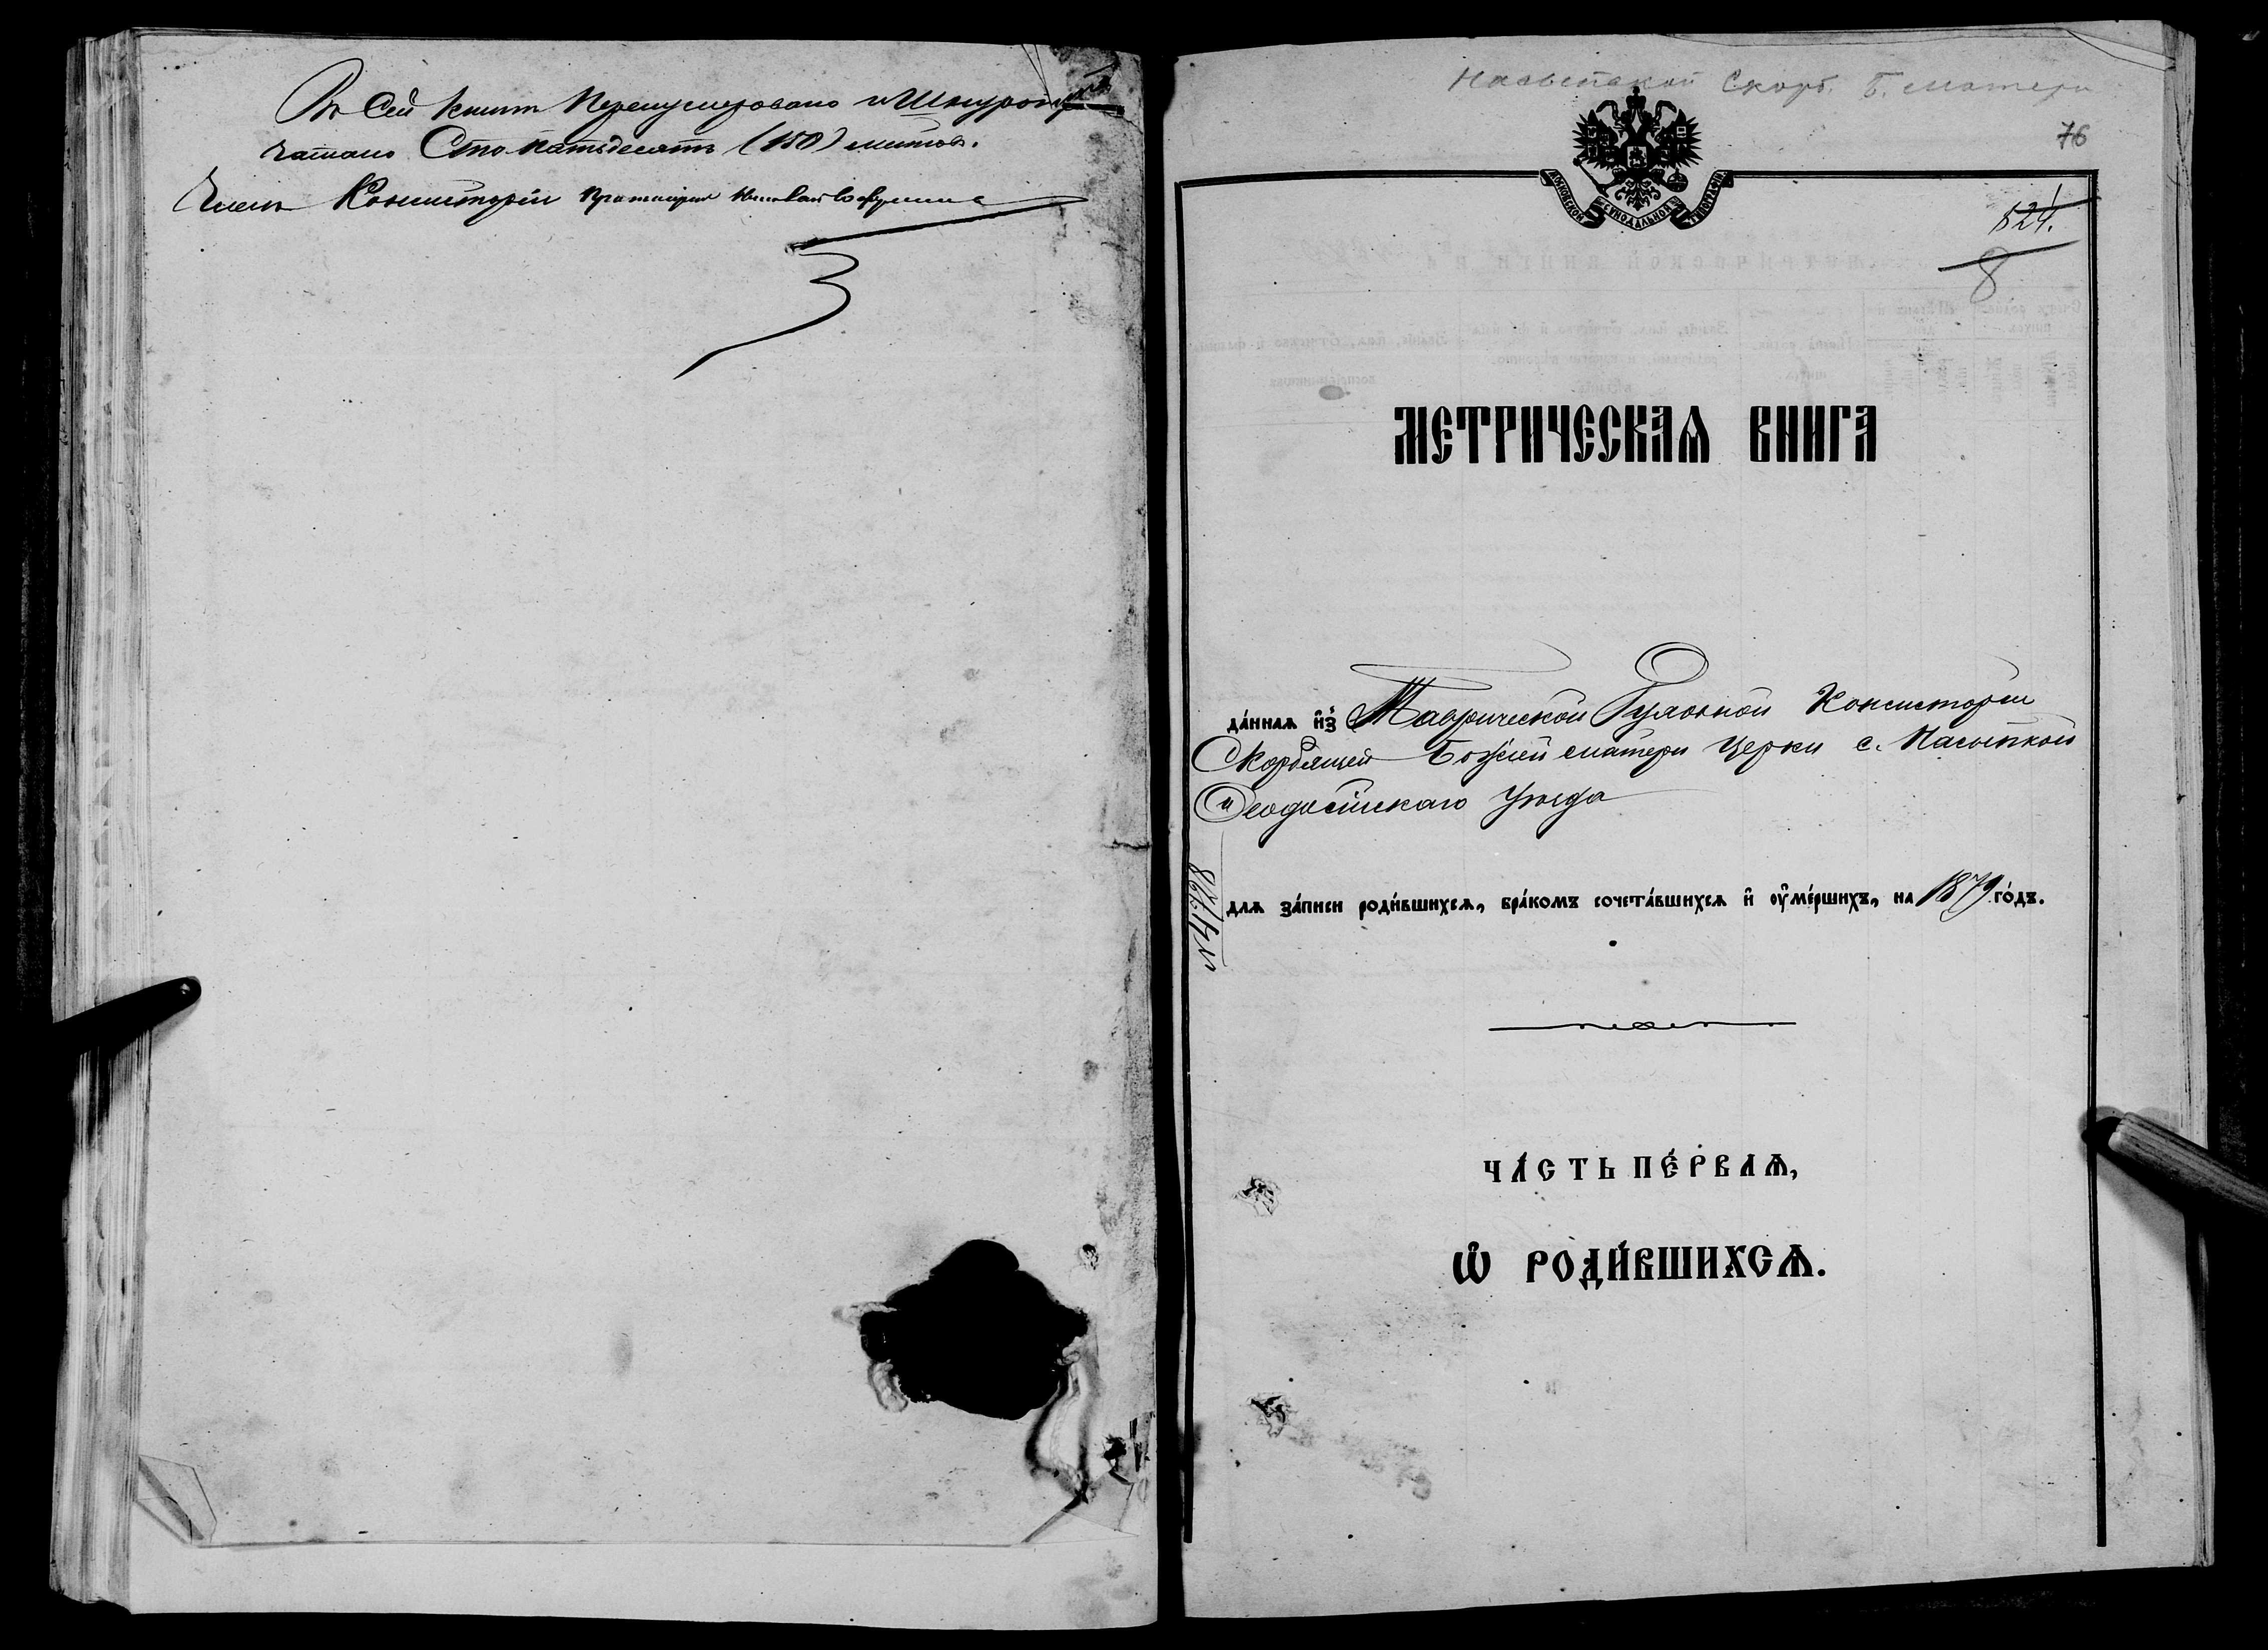 Въ Сей Книгѣ Перенумеровано и Шнуропри-
чатано Сто пятьдесятъ (150) листовъ.
Членъ Консисторіи Протоіерей
Насыпской Скорб. Б. Матери
76
МОСКОВСКОЙ СѴНОДАЛЬНОЙ ТИПОГРАФІИ
524.
8
МЕТРИЧЕСКАѦ КНИГА
да́ннаѧ и҆зъ Таврической Духовной Консисторіи
Скорбящей Божіей Матери Церкви с. Насыпкой
Ѳеодосійскаго Уѣзда
для за́писи роди́вшихсѧ, бра́комъ сочета́вшихсѧ и҆ ᲂу҆ме́ршихъ, на 1879 го́дъ.
ЧА́СТЬ ПЕ́РВАѦ,
Ѡ҆ РОДИ́ВШИХСѦ.